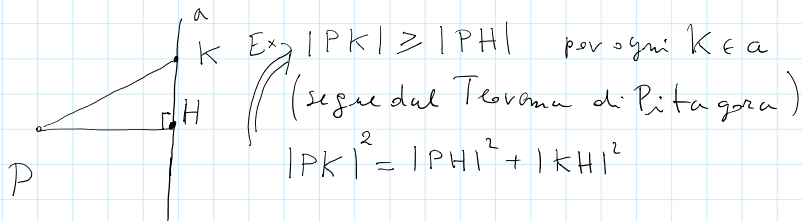 a
K
Ex |PK| ≥ |PH| per ogni K ∈ a
H
(segue dal Teorema di Pitagora)
|PK|² = |PH|² + |KH|²
P